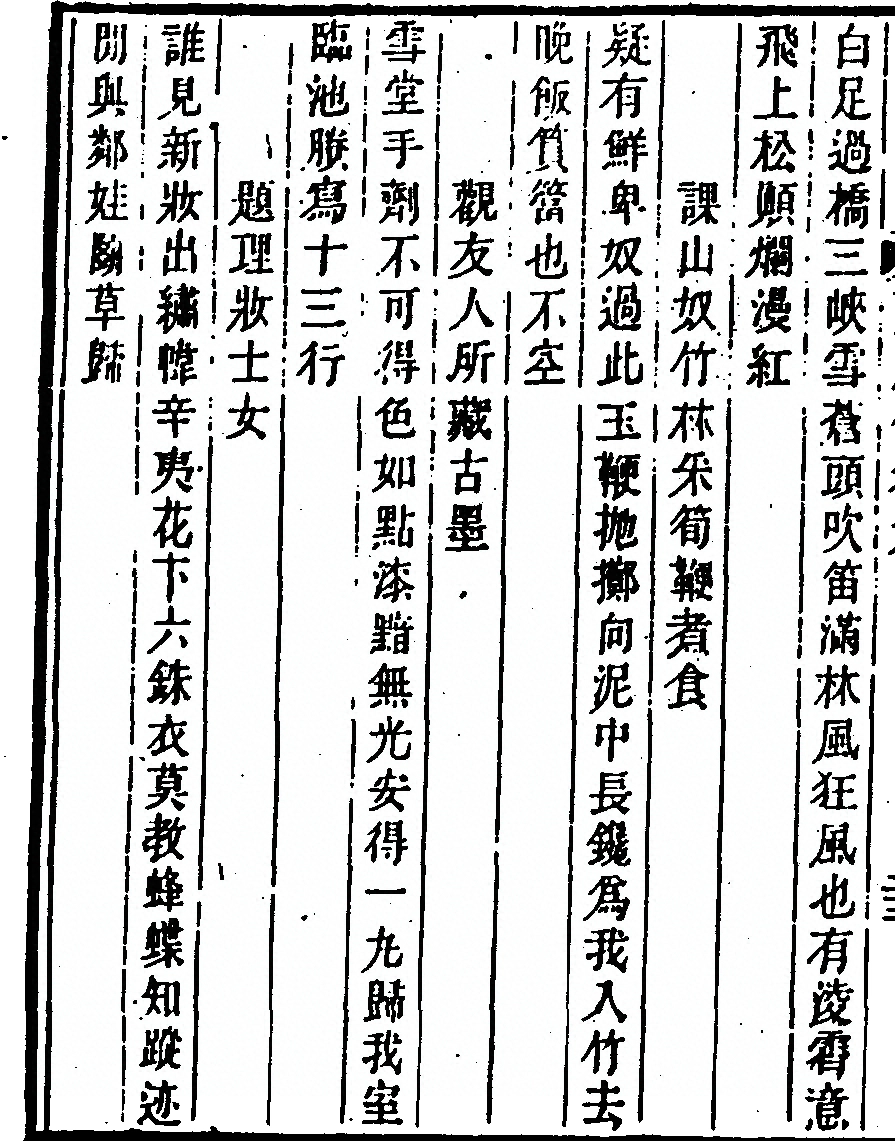 白足過橋三峽雪蒼頭吹笛滿林風狂風也有淩霄意
飛上松顚爛漫紅
課山奴竹林采筍鞭煮食
疑有鮮卑奴過此玉鞭抛擲向泥中長鑱爲我入竹去
晚飯篔簹也不空
觀友人所藏古墨
雪堂手劑不可得色如點漆黯無光安得一丸歸我室
臨池賸寫十三行
題理妝士女
誰見新妝出繡幃辛夷花下六銖衣莫教蜂蝶知蹤迹
閒與鄰娃鬭草歸